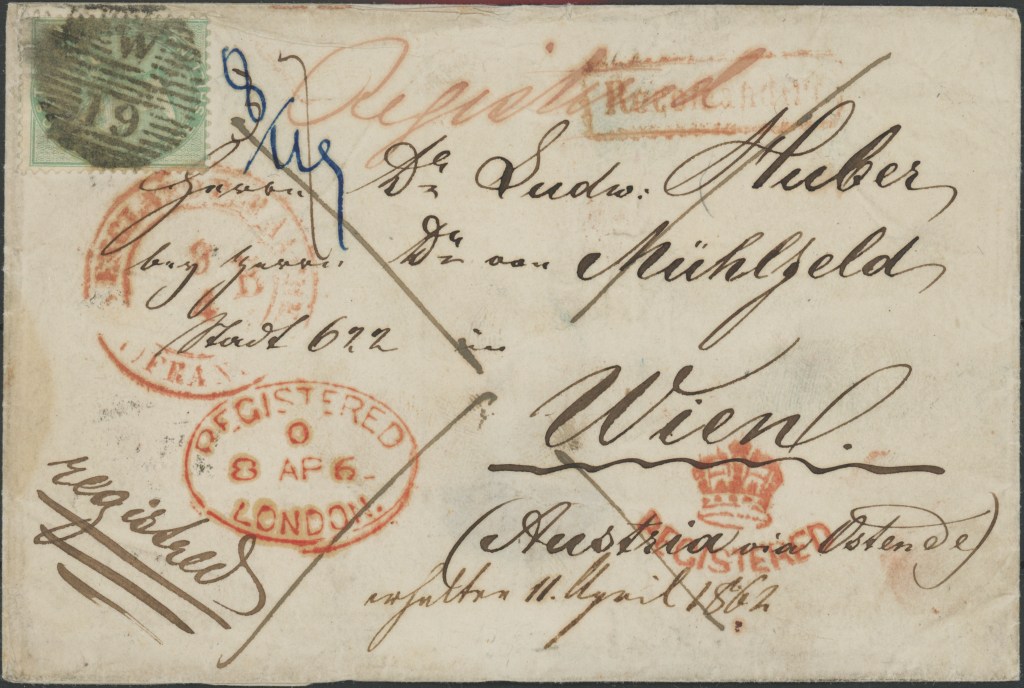 W
19
Registered
Recommandirt
Herrn Dr Ludw: Huber
bey Herrn Dr von Mühlfeld
Stadt 622 in
Wien.
FRAN
REGISTERED
O
8 AP 6
LONDON.
registered
REGISTERED
(Austria via Ostende)
erhalten 11. April 1862